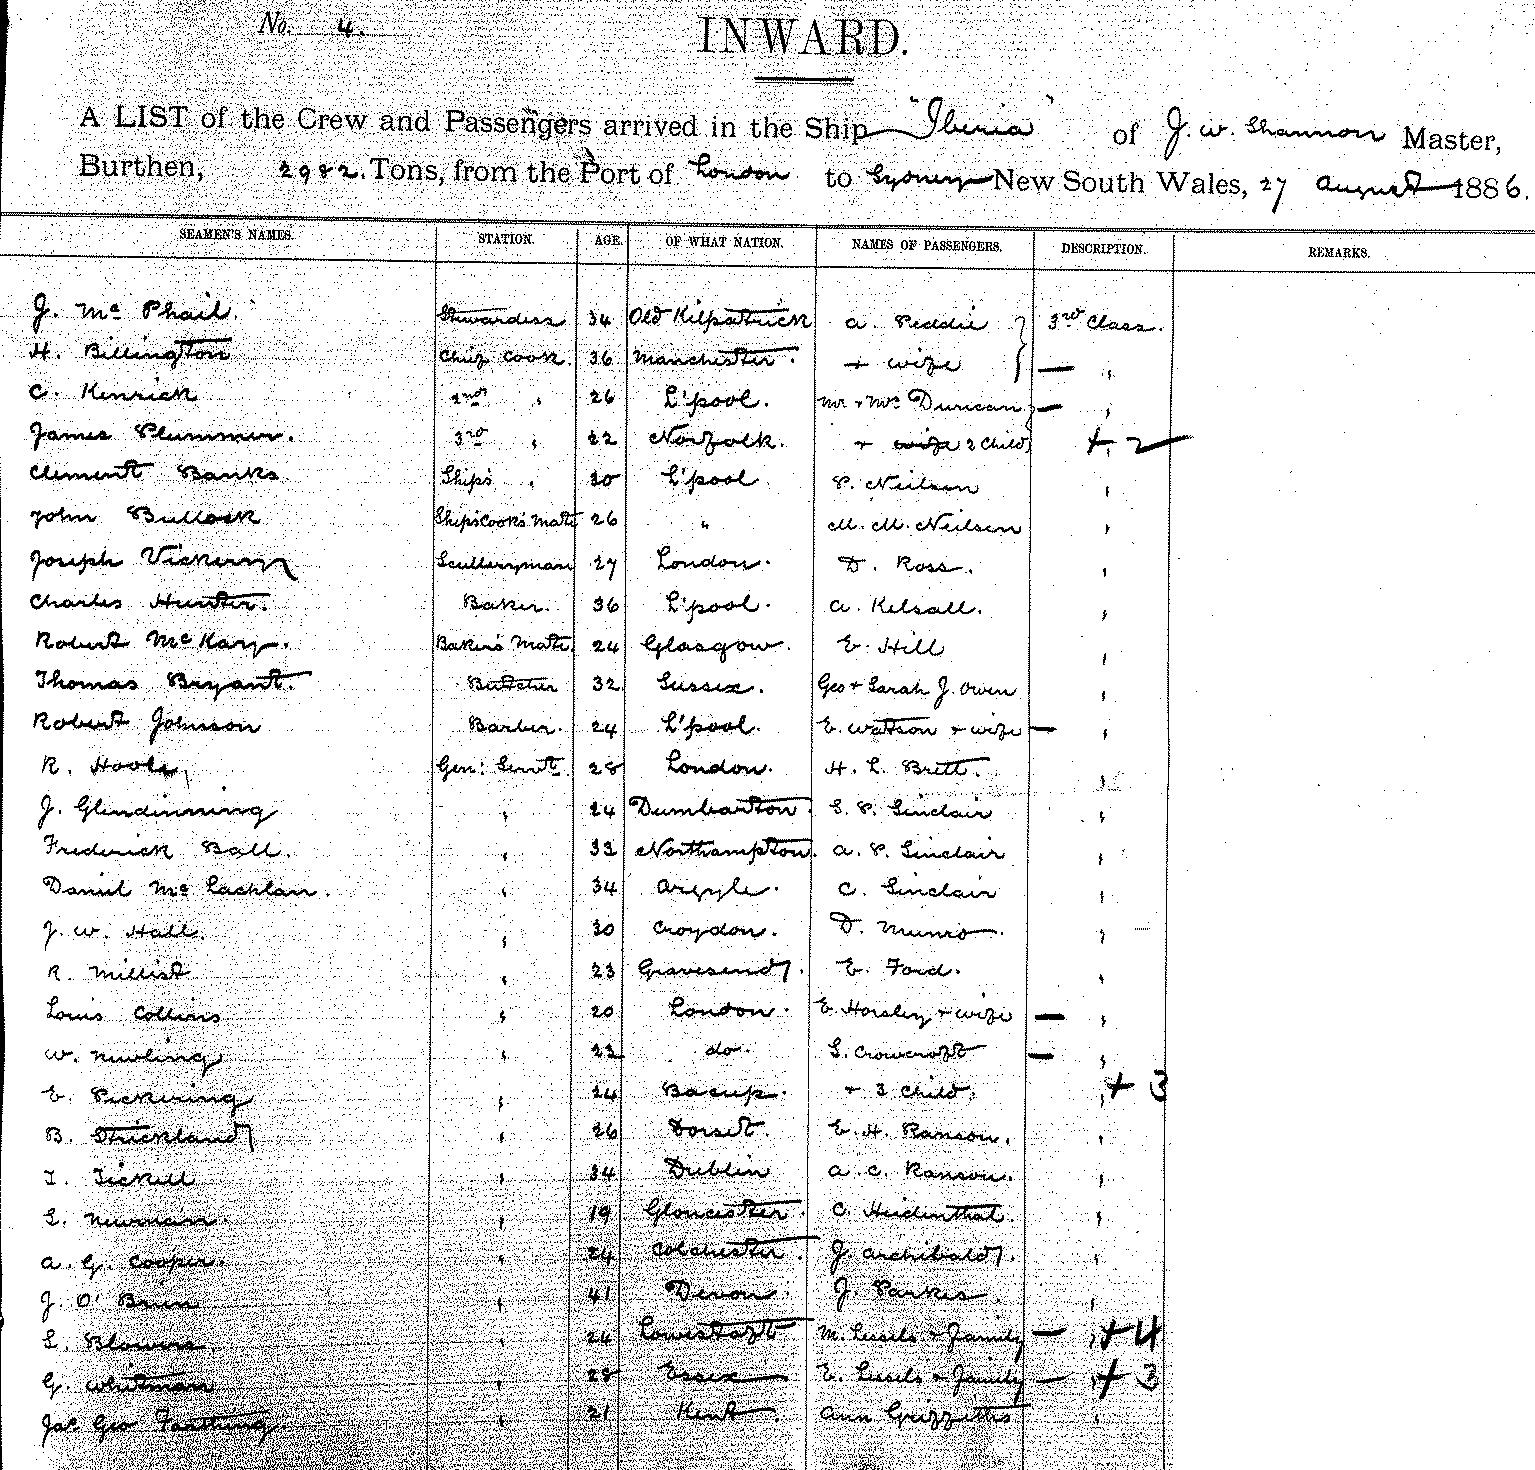 No. 4.
INWARD.
A LIST of the Crew and Passengers arrived in the Ship "Iberia" of J. W. Shannon Master,
Burthen, 2982. Tons, from the Port of London to Sydney New South Wales, 27 August 1886.
SEAMEN'S NAMES. STATION. AGE. OF WHAT NATION. NAMES OF PASSENGERS. DESCRIPTION. REMARKS.
J. Mc Phail. Stewardess 34 Old Kilpatrick A. Peddie 3rd Class.
H. Billington Chief Cook. 36 Manchester. + wife — "
C. Kenrick 2nd " 26 L'pool. Mr + Mrs Duncan — "
James Plummer. 3rd " 22 Norfolk. + wife 2 Child + 2
Clement Banks Ships " 30 L'pool P. Neilsen "
John Bullock Ship's Cook's Mate 26 " M. M. Neilsen "
Joseph Vickery Sculleryman 27 London. D. Ross. "
Charles Hunter. Baker. 36 L'pool. A. Kelsall. "
Robert McKay. Baker's Mate. 24 Glasgow. E. Hill "
Thomas Bryant. Butcher 32 Sussex. Geo + Sarah J. Owen "
Robert Johnson Barber. 24 L'pool. E. Watson + wife — "
R. Hoole, Genl Servt 28 London. H. L. Brett. "
J. Glendinning " 24 Dumbarton. S. P. Sinclair "
Frederick Ball. " 33 Northampton. A. P. Sinclair "
Daniel Mc Lachlan. " 34 Argyle. C. Sinclair "
J. W. Hall. " 30 Croydon. D. Munro. "
R. Millist " 23 Gravesend. E. Ford. "
Louis Collins " 20 London. E. Horsley + wife — "
W. Newling " 23 do. S. Crowcroft — "
E. Pickering " 24 Bacup. + 3 Child. " + 3
B. Strickland " 26 Dorset. E. H. Ranson. "
T. Tickell " 34 Dublin A. C. Ranson. "
S. Newman. " 19 Gloucester. C. Heidenthal. "
A. G. Cooper. " 24 Colchester. J. Archibald. "
J. O'Brien " 41 Devon. J. Parkes. "
S. Blowers. " 24 Lowestoft M. + Family — " + 4
G. Whitman " 28 Essex E. + Family — " + 3
Jas Geo Farthing " 21 Kent. Ann Griffiths "